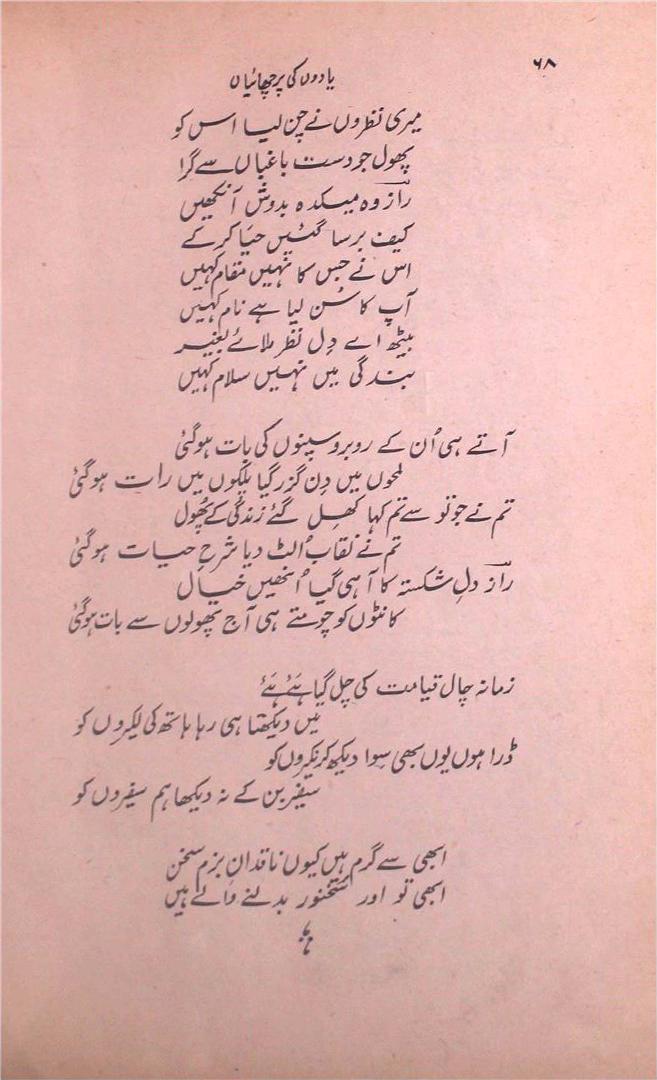 ۶۸
یادوں کی پرچھائیاں
میری نظروں نے چن لیا اس کو
پھول جو دست باغباں سے گرا
رازؔ وہ میکدہ بدوش آنکھیں
کیف برسا گئیں حیا کر کے
اس نے جس کا نہیں مقام کہیں
آپ کا سُن لیا ہے نام کہیں
بیٹھ اے دِل نظر ملائے بغیر
بندگی میں نہیں سلام کہیں
آتے ہی اُن کے روبرو سپنوں کی بات ہوگئی
لمحوں میں دِن گزر گیا پلکوں میں رات ہوگئی
تم نے جو تو سے تم کہا کھِل گئے زندگی کے پھُول
تم نے نقاب اُلٹ دیا شرحِ حیات ہوگئی
رازؔ دلِ شکستہ کا آ ہی گیا اُنھیں خیال
کانٹوں کو چومتے ہی آج پھولوں سے بات ہوگئی
زمانہ چال قیامت کی چل گیا ہَے ہَے
میں دیکھتا ہی رہا ہاتھ کی لکیروں کو
ڈرا ہوں یوں بھی سِوا دیکھ کر نکیروں کو
سفیر بن کے نہ دیکھا ہم سفیروں کو
ابھی سے گرم ہیں کیوں ناقدانِ بزم سخن
ابھی تو اور سخنور بدلنے والے ہیں